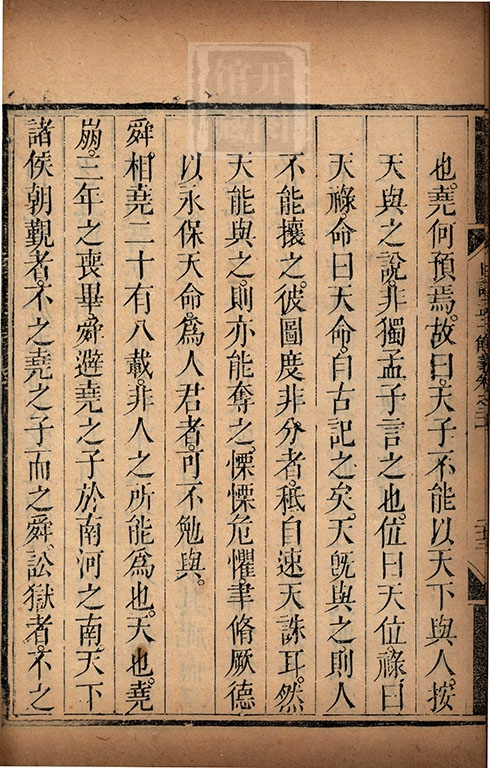 也堯何預焉故曰天子不能以天下與人按
天與之說非獨孟子言之也位曰天位祿曰
天祿命曰天命自古記之矣天旣與之則人
不能攘之彼圖度非分者秪自速天誅耳然
天能與之則亦能奪之慄慄危懼聿脩厥德
以永保天命爲人君者可不勉與
舜相堯二十有八載非人之所能爲也天也堯
崩三年之喪畢舜避堯之子於南河之南天下
諸侯朝覲者不之堯之子而之舜訟獄者不之